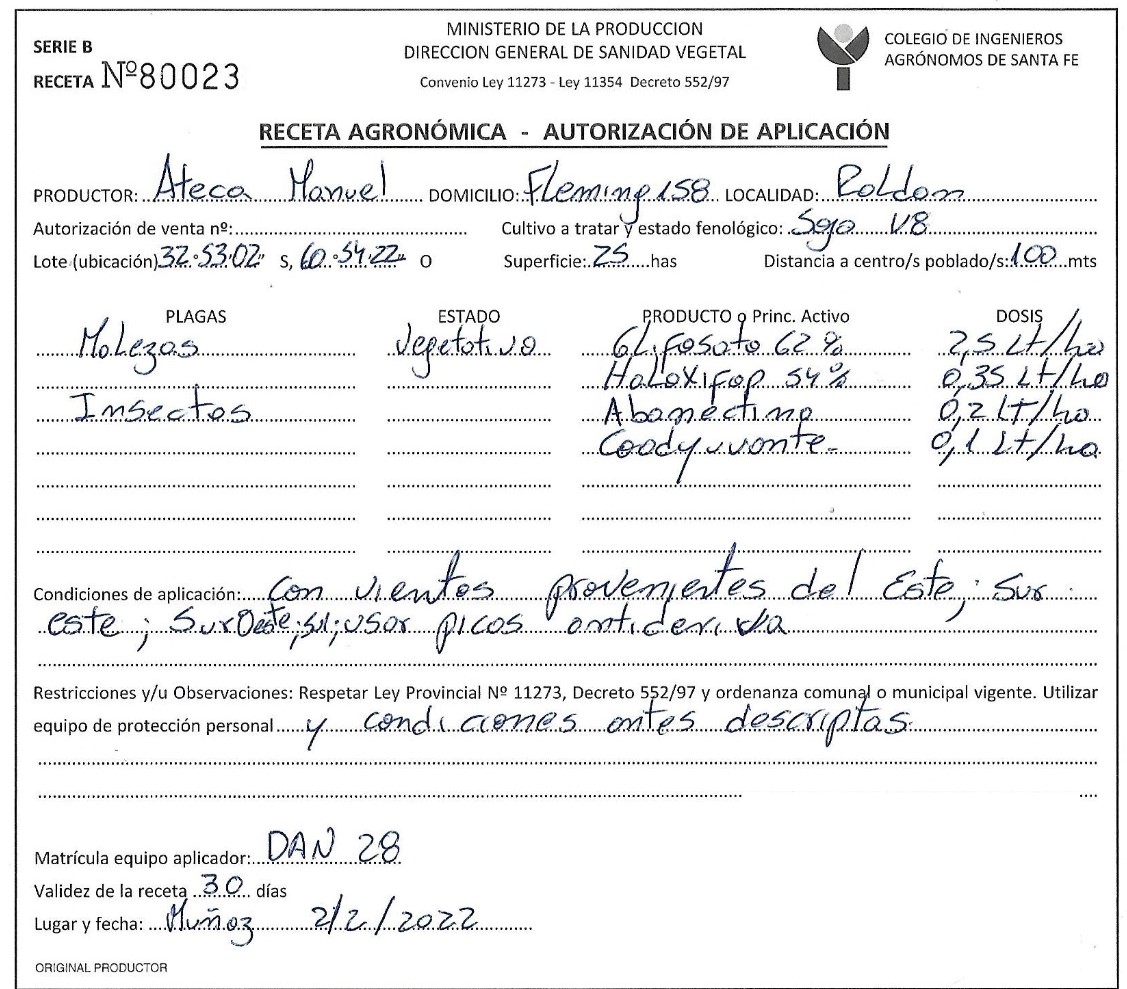 SERIE B
RECETA Nº80023
MINISTERIO DE LA PRODUCCION
DIRECCION GENERAL DE SANIDAD VEGETAL
Convenio Ley 11273 - Ley 11354 Decreto 552/97
COLEGIO DE INGENIEROS
AGRÓNOMOS DE SANTA FE
RECETA AGRONÓMICA - AUTORIZACIÓN DE APLICACIÓN
PRODUCTOR: Ateca Manuel DOMICILIO: Fleming 158 LOCALIDAD: Roldan
Autorización de venta nº:
Cultivo a tratar y estado fenológico: Soja V8
Lote (ubicación) 32·53·02" S, 60·54·22" O Superficie: 25 has Distancia a centro/s poblado/s: 100 mts
PLAGAS ESTADO PRODUCTO o Princ. Activo DOSIS
Malezas Vegetativo Glifosato 62% 2,5 Lt/ha
Haloxifop 54% 0,35 Lt/ha
Insectos Abamectina 0,2 Lt/ha
Coadyuvante- 0,1 Lt/ha
Condiciones de aplicación: Con vientos provenientes del Este; Sur
este; SurOeste; sur; usar picos antideriva
Restricciones y/u Observaciones: Respetar Ley Provincial Nº 11273, Decreto 552/97 y ordenanza comunal o municipal vigente. Utilizar
equipo de protección personal y condiciones antes descriptas.
Matrícula equipo aplicador: DAN 28
Validez de la receta 30 días
Lugar y fecha: Muñoz 2/2/2022
ORIGINAL PRODUCTOR